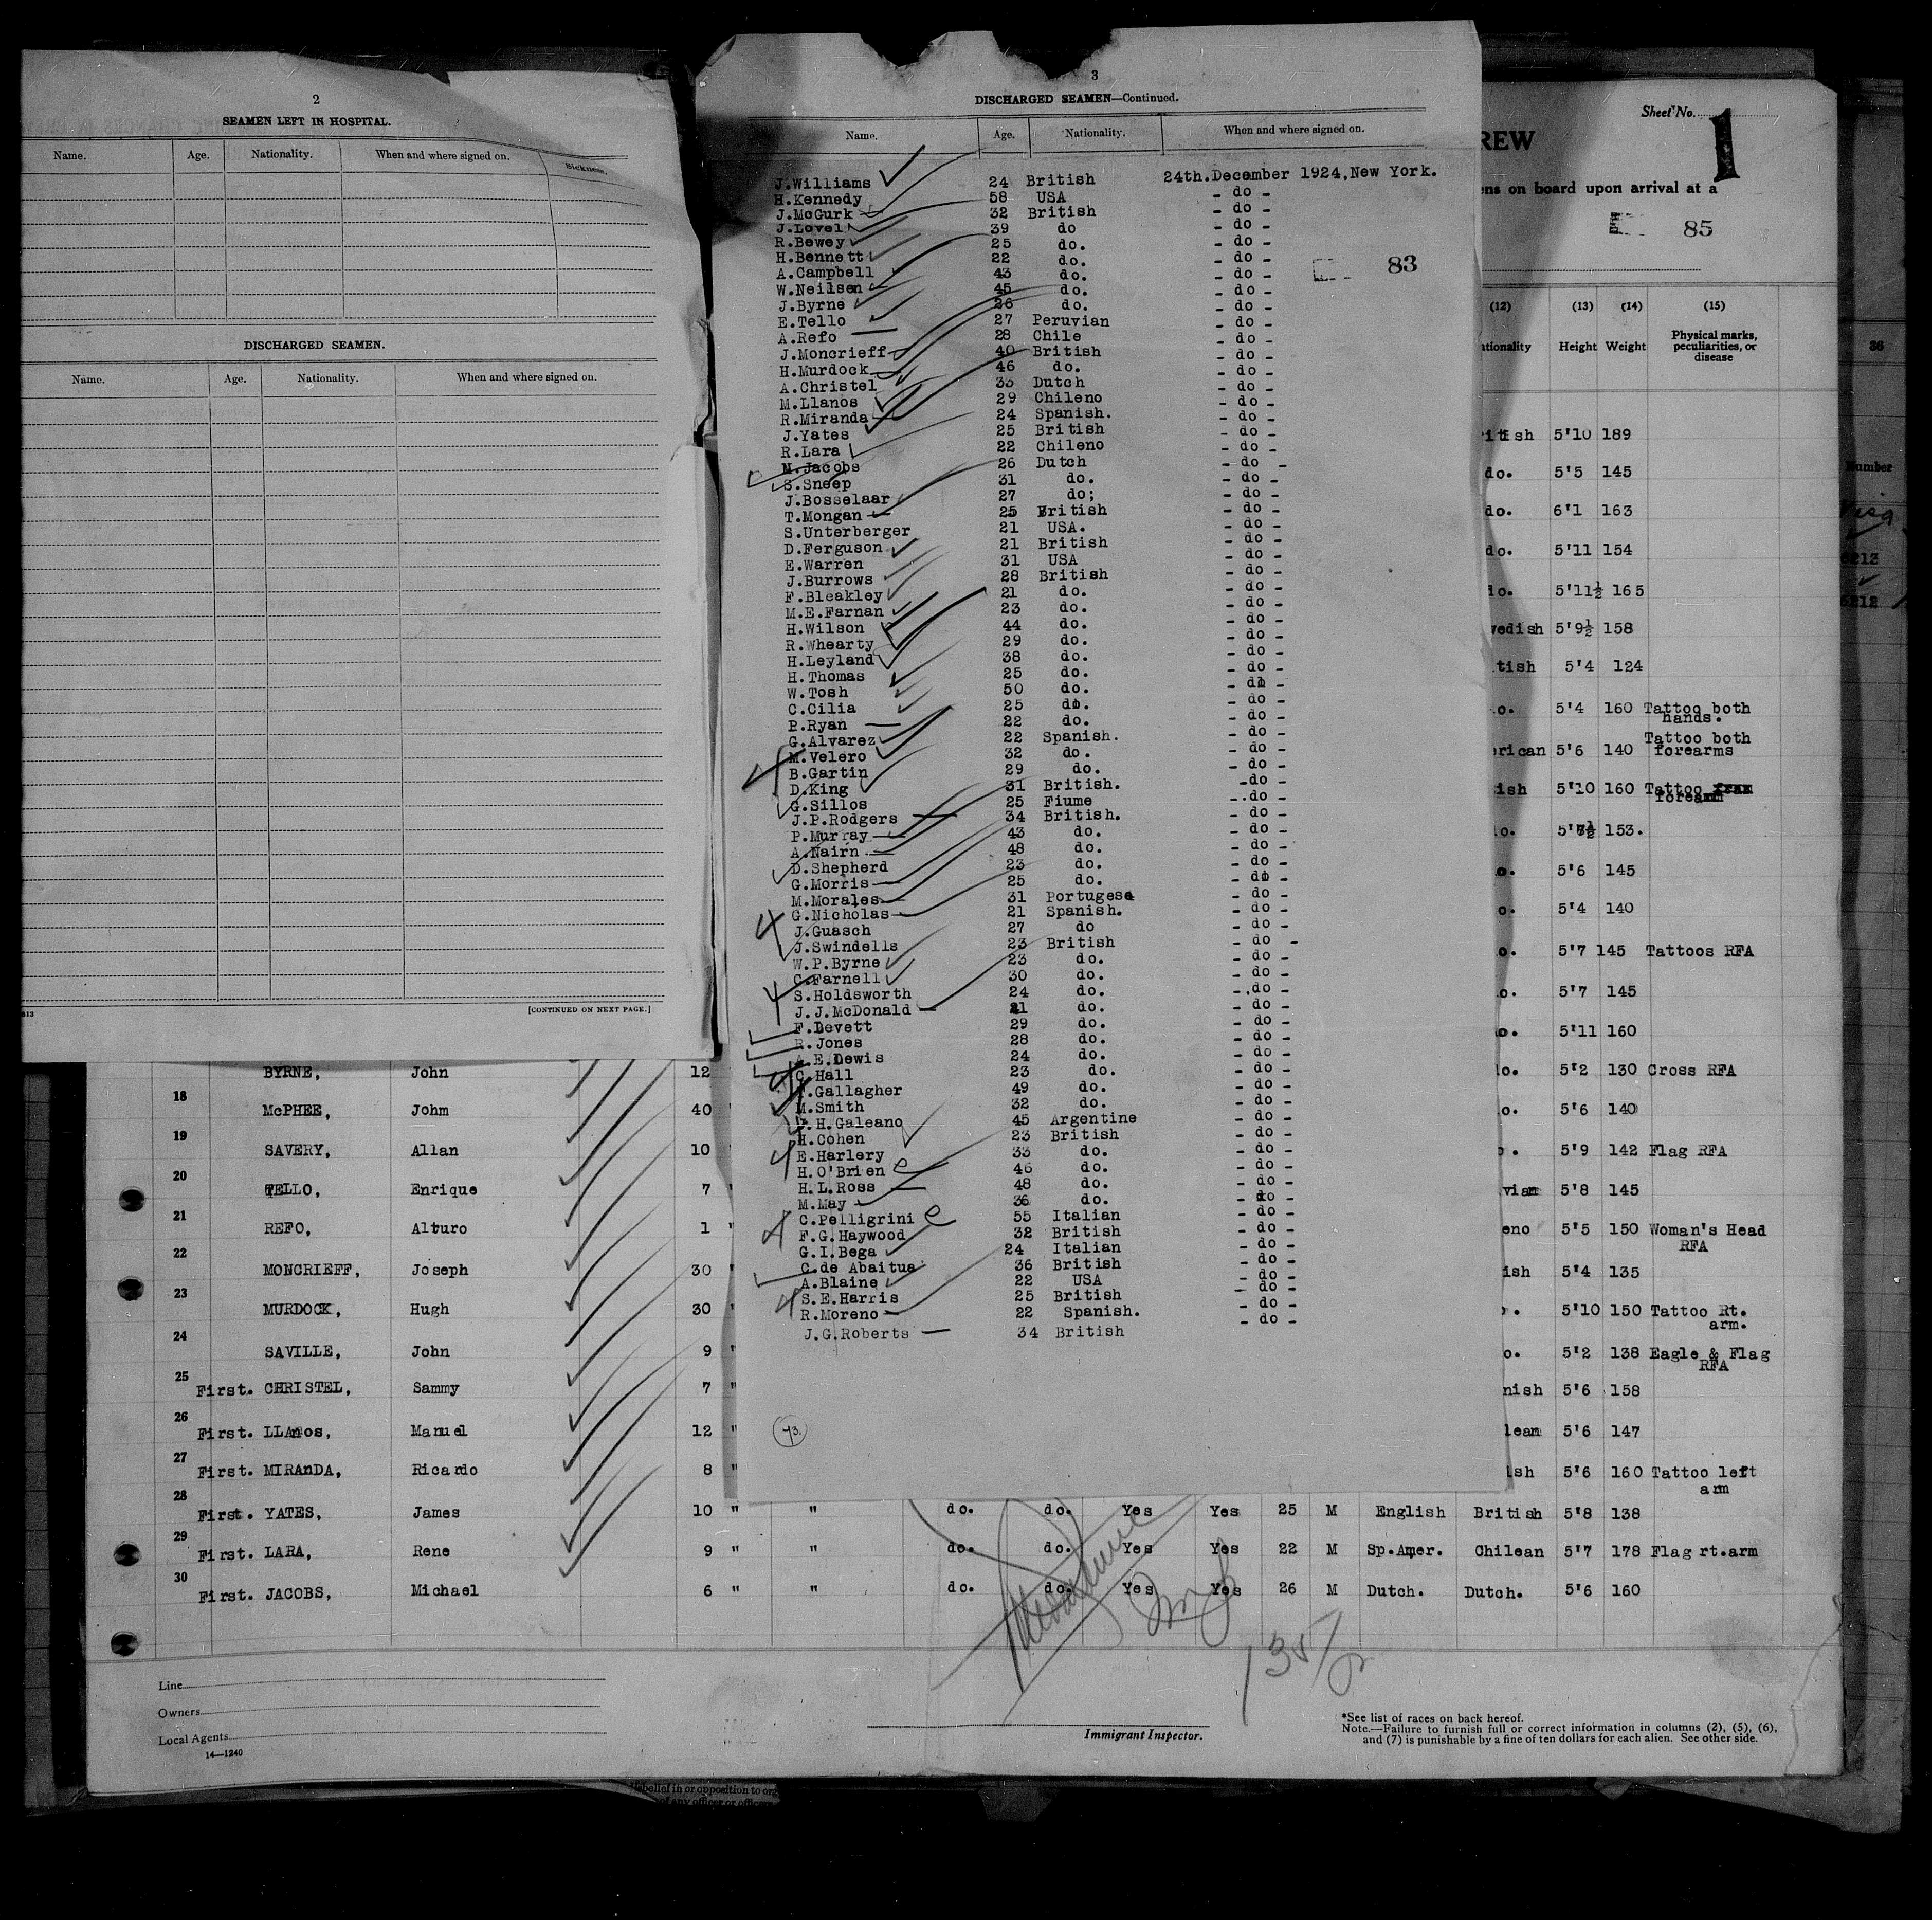 2
SEAMEN LEFT IN HOSPITAL.
Name. Age. Nationality. When and where signed on. Sickness.
DISCHARGED SEAMEN.
Name. Age. Nationality. When and where signed on.
613 [CONTINUED ON NEXT PAGE.]
3
DISCHARGED SEAMEN—Continued.
Name. Age. Nationality. When and where signed on.
J.Williams 24 British 24th.December 1924,New York.
H.Kennedy 58 USA - do -
J.McGurk 32 British - do -
J.Lovel 39 do - do -
R.Bewey 25 do. - do -
H.Bennett 22 do. - do -
A.Campbell 43 do. - do -
W.Neilsen 45 do. - do -
J.Byrne 26 do. - do -
E.Tello 27 Peruvian - do -
A.Refo 28 Chile - do -
J.Moncrieff 40 British - do -
H.Murdock 46 do. - do -
A.Christel 33 Dutch - do -
M.Llanos 29 Chileno - do -
R.Miranda 24 Spanish. - do -
J.Yates 25 British - do -
R.Lara 22 Chileno - do -
N.Jacobs 26 Dutch - do -
S.Sneep 31 do. - do -
J.Bosselaar 27 do; - do -
T.Mongan 25 British - do -
S.Unterberger 21 USA. - do -
D.Ferguson 21 British - do -
E.Warren 31 USA - do -
J.Burrows 28 British - do -
F.Bleakley 21 do. - do -
M.E.Farnan 23 do. - do -
H.Wilson 44 do. - do -
R.Whearty 29 do. - do -
H.Leyland 38 do. - do -
H.Thomas 25 do. - do -
W.Tosh 50 do. - do -
C.Cilia 25 do. - do -
P.Ryan 22 do. - do -
G.Alvarez 22 Spanish. - do -
M.Velero 32 do. - do -
B.Gartin 29 do. - do -
D.King 31 British. -do -
G.Sillos 25 Fiume -.do -
J.P.Rodgers 34 British. - do -
P.Murray 43 do. - do -
A.Nairn 48 do. - do -
D.Shepherd 23 do. - do -
G.Morris 25 do. - do -
M.Morales 31 Portugese - do -
G.Nicholas 21 Spanish. - do -
J.Guasch 27 do - do -
J.Swindells 23 British - do -
W.P.Byrne 23 do. - do -
C.Farnell 30 do. - do -
S.Holdsworth 24 do. -.do -
J.J.McDonald 21 do. - do -
F.Devett 29 do. - do -
R.Jones 28 do. - do -
A.E.Lewis 24 do. - do -
C.Hall 23 do. - do -
Gallagher 49 do. - do -
M.Smith 32 do. - do -
H.Galeano 45 Argentine - do -
H.Cohen 23 British - do -
E.Harlery 33 do. - do -
H.O'Brien 46 do. - do -
H.L.Ross 48 do. - do -
M.May 36 do. - do -
C.Pelligrini 55 Italian - do -
F.G.Haywood 32 British - do -
G.I.Bega 24 Italian - do -
C.de Abaitua 36 British - do -
A.Blaine 22 USA - do -
S.E.Harris 25 British - do -
R.Moreno 22 Spanish. - do -
J.G.Roberts 34 British - do -
83
73.
REW
Sheet No. 1
ens on board upon arrival at a
85
(12) (13) (14) (15)
ationality Height Weight Physical marks, peculiarities, or disease
36
Number
6213
6212
itish 5'10 189
do. 5'5 145
do. 6'1 163
do. 5'11 154
do. 5'11½ 165
vedish 5'9½ 158
tish 5'4 124
o. 5'4 160 Tattoo both
hands.
erican 5'6 140 Tattoo both
forearms
ish 5'10 160 Tattoo
forearm
o. 153.
o. 5'6 145
o. 5'4 140
o. 5'7 145 Tattoos RFA
o. 5'7 145
o. 5'11 160
BYRNE, John 12 do. 5'2 130 Cross RFA
18 McPHEE, Johm 40 o. 5'6 140
19 SAVERY, Allan 10 5'9 142 Flag RFA
20 TELLO, Enrique 7 " vian 5'8 145
21 REFO, Alturo 1 " eno 5'5 150 Woman's Head
RFA
22 MONCRIEFF, Joseph 30 " ish 5'4 135
23 MURDOCK, Hugh 30 " 5'10 150 Tattoo Rt.
arm.
24 SAVILLE, John 9 " o. 5'2 138 Eagle & Flag
RFA
25 First. CHRISTEL, Sammy 7 " nish 5'6 158
26 First. LLAnos, Manuel 12 " lean 5'6 147
27 First. MIRAnDA, Ricardo 8 " ish 5'6 160 Tattoo left
arm
28 First. YATES, James 10 " " do. do. Yes Yes 25 M English British 5'8 138
29 First. LARA, Rene 9 " " do. do. Yes Yes 22 M Sp.Amer. Chilean 5'7 178 Flag rt.arm
30 First. JACOBS, Michael 6 " " do. do. Yes Yes 26 M Dutch. Dutch. 5'6 160
Line
Owners
Local Agents
14—1240
Immigrant Inspector.
*See list of races on back hereof.
Note.—Failure to furnish full or correct information in columns (2), (5), (6),
and (7) is punishable by a fine of ten dollars for each alien. See other side.
belief in or opposition to org
of any officer or officers